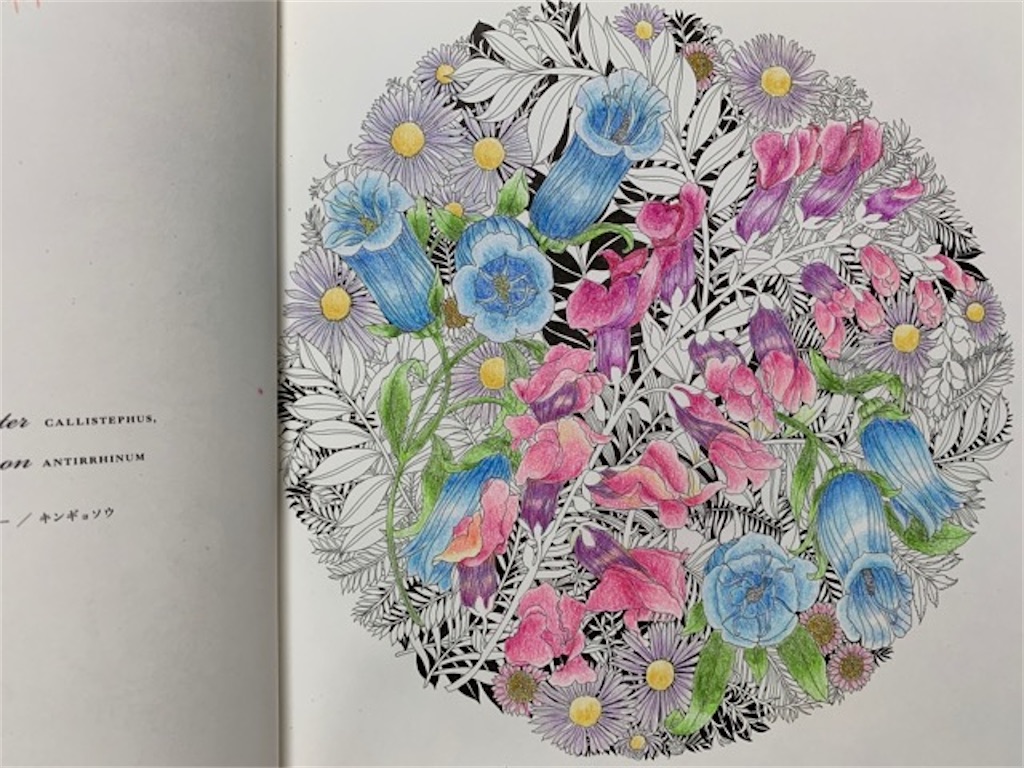 CALLISTEPHUS,
ANTIRRHINUM
ー / キンギョソウ